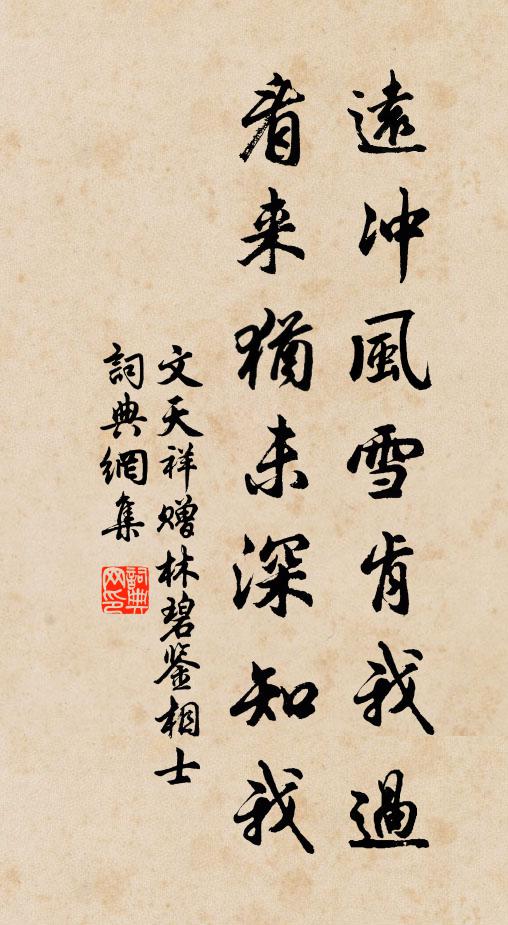 遠冲風雪肯我過
看来猶未深知我
文天祥贈林碧鉴相士
詞典網集
詞典网印